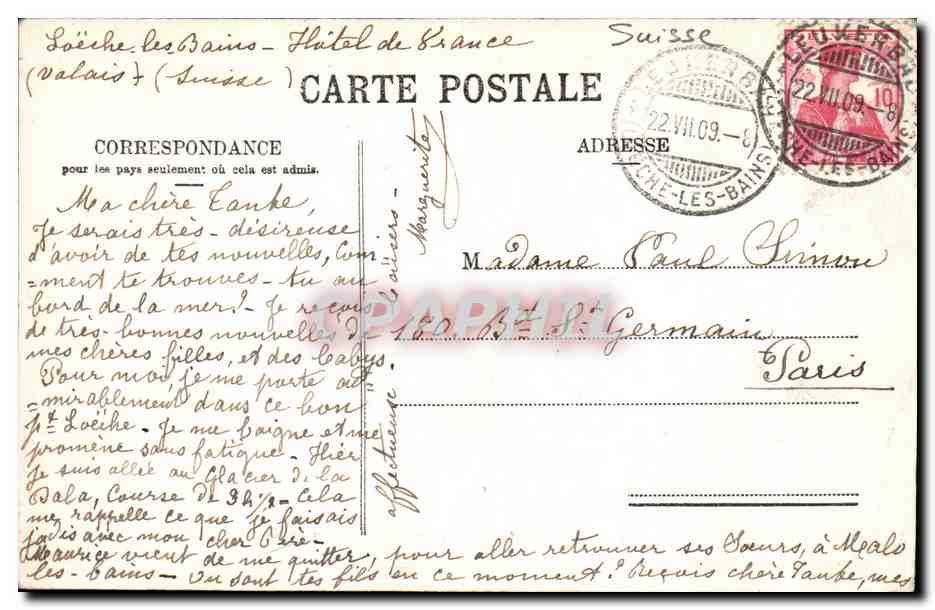 Loëche-les-Bains - Hôtel de France
(Valais) - (Suisse)
Suisse
CARTE POSTALE
CORRESPONDANCE
pour les pays seulement où cela est admis.
ADRESSE
LEUKERBAD
22.VII.09.-8
LOËCHE-LES-BAINS
LEUKERBAD
22.VII.09.-8
LOËCHE-LES-BAINS
10
Ma chère Tanke,
Je serais très-désireuse
d'avoir de tes nouvelles, Com
=ment te trouves-tu au
bord de la mer? - Je reçois
de très-bonnes nouvelles de
mes chères filles, et des babys
Pour moi, je me porte ad
=mirablement dans ce bon
pt Loëche - Je me baigne et me
promène sans fatigue - Hier
je suis allée au Glacier de la
Dala, Course de 3h 1/2 - Cela
me rappelle ce que je faisais
jadis avec mon cher Père -
Maurice vient de me quitter, pour aller retrouver ses Soeurs, à Malo
les-bains - Où sont tes fils en ce moment? Reçois chère Tanke, mes
affectueuse - baisers -
Marguerite
Madame Paul Simon
180. Bd St Germain
Paris
CPAPHIL